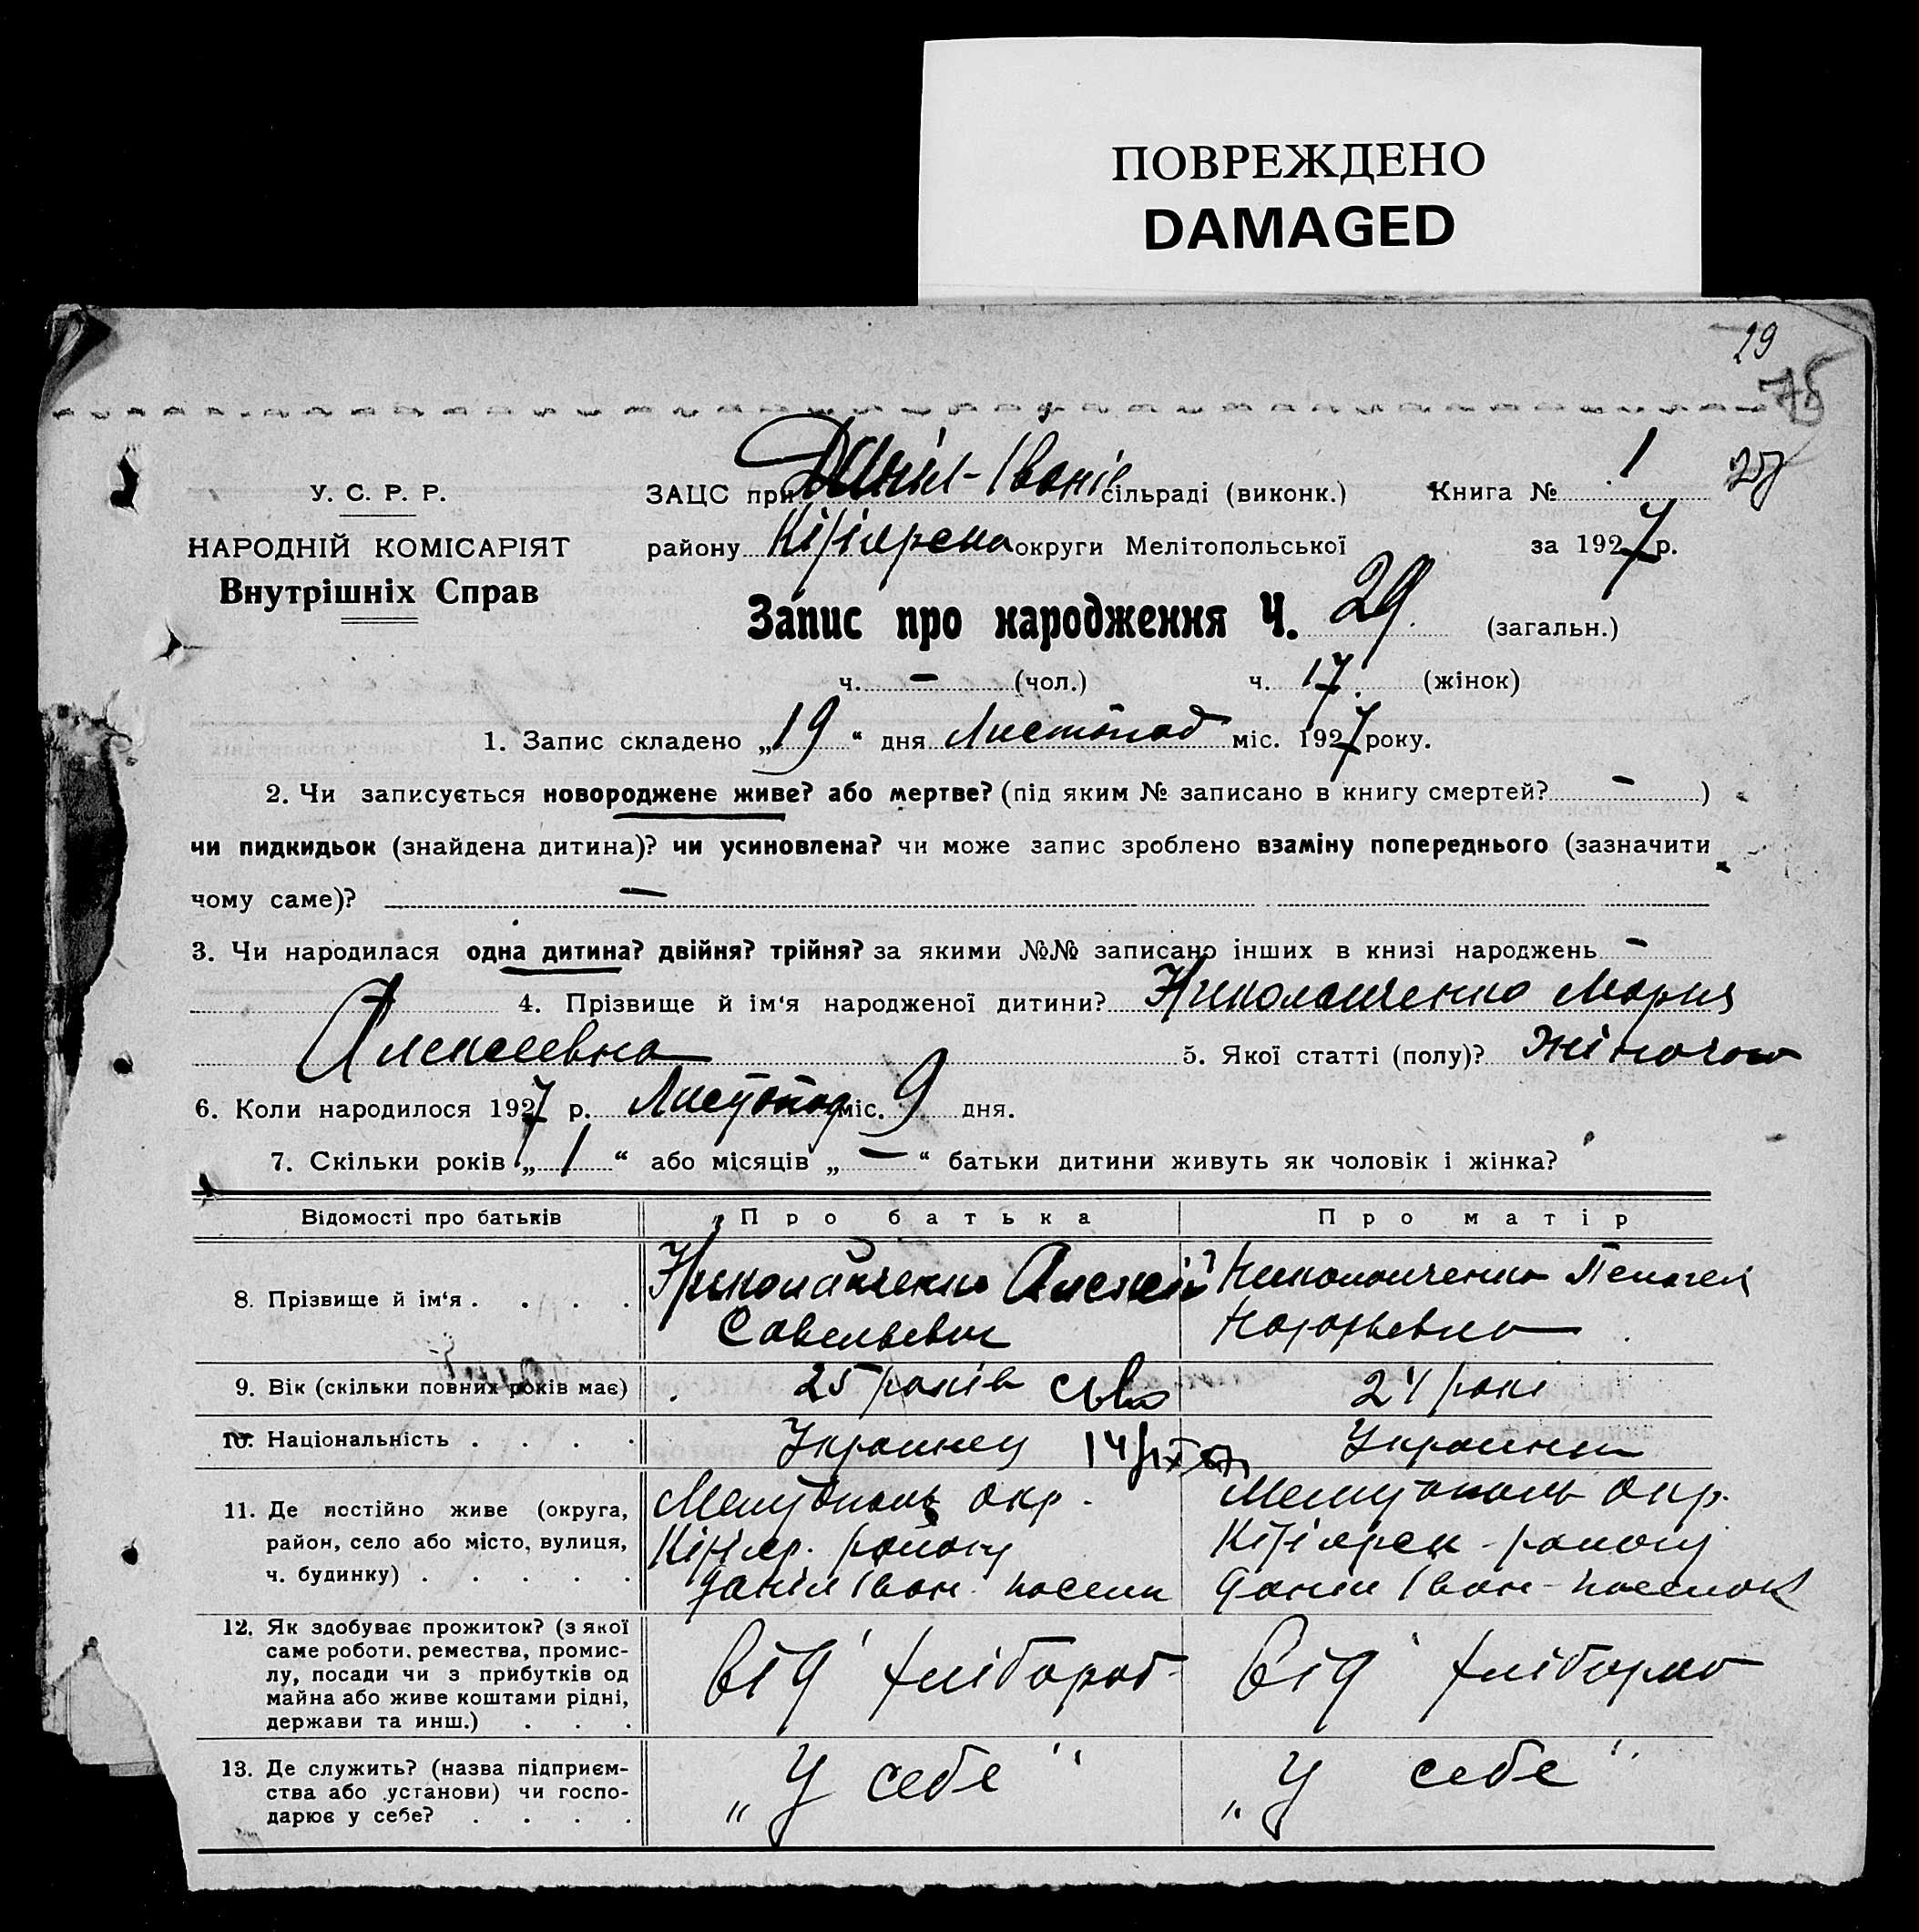 ПОВРЕЖДЕНО
DAMAGED
29
У. С. Р. Р.
НАРОДНІЙ КОМІСАРІЯТ
Внутрішніх Справ
ЗАЦС при Даніл-Іваніе сільраді (виконк.) Книга № 1
району округи Мелітопольської за 1927 р.
Запис про народження Ч. 29. (загальн.)
ч. — (чол.) ч. 17. (жінок)
1. Запис складено „19“ дня Листопад міс. 1927 року.
2. Чи записується новороджене живе? або мертве? (під яким № записано в книгу смертей? — )
чи пидкидьок (знайдена дитина)? чи усиновлена? чи може запис зроблено взаміну попереднього (зазначити
чому саме)? —
3. Чи народилася одна дитина? двійня? трійня? за якими №№ записано інших в книзі народжень —
4. Прізвище й ім‘я народженої дитини? Николайченко Мария
Алексеевна 5. Якої статті (полу)? Жіночої
6. Коли народилося 1927 р. Листопад міс. 9 дня.
7. Скільки років „ 1 “ або місяців „ — “ батьки дитини живуть як чоловік і жінка?
Відомості про батьків Про батька Про матір
8. Прізвище й ім‘я . . . . Николайченко Алексій Николайченко Пелагея
Савельевич
9. Вік (скільки повних років має) 25 років 24 рокі
10. Національність . . . . Украинец Украинка
11. Де постійно живе (округа, район, село або місто, вулиця, ч. будинку) . . . . . Мелітополь окр. Мелітополь окр.
району району
Даніл Іван поселк Даніл Іван-поселок
12. Як здобуває прожиток? (з якої
саме роботи, ремества, промис-
лу, посади чи з прибутків од
майна або живе коштами рідні,
держави та инш.) . . . від хлібороб від хлібороб
13. Де служить? (назва підприєм-
ства або установи) чи госпо-
дарює у себе? . . . . „У себе“ „У себе“